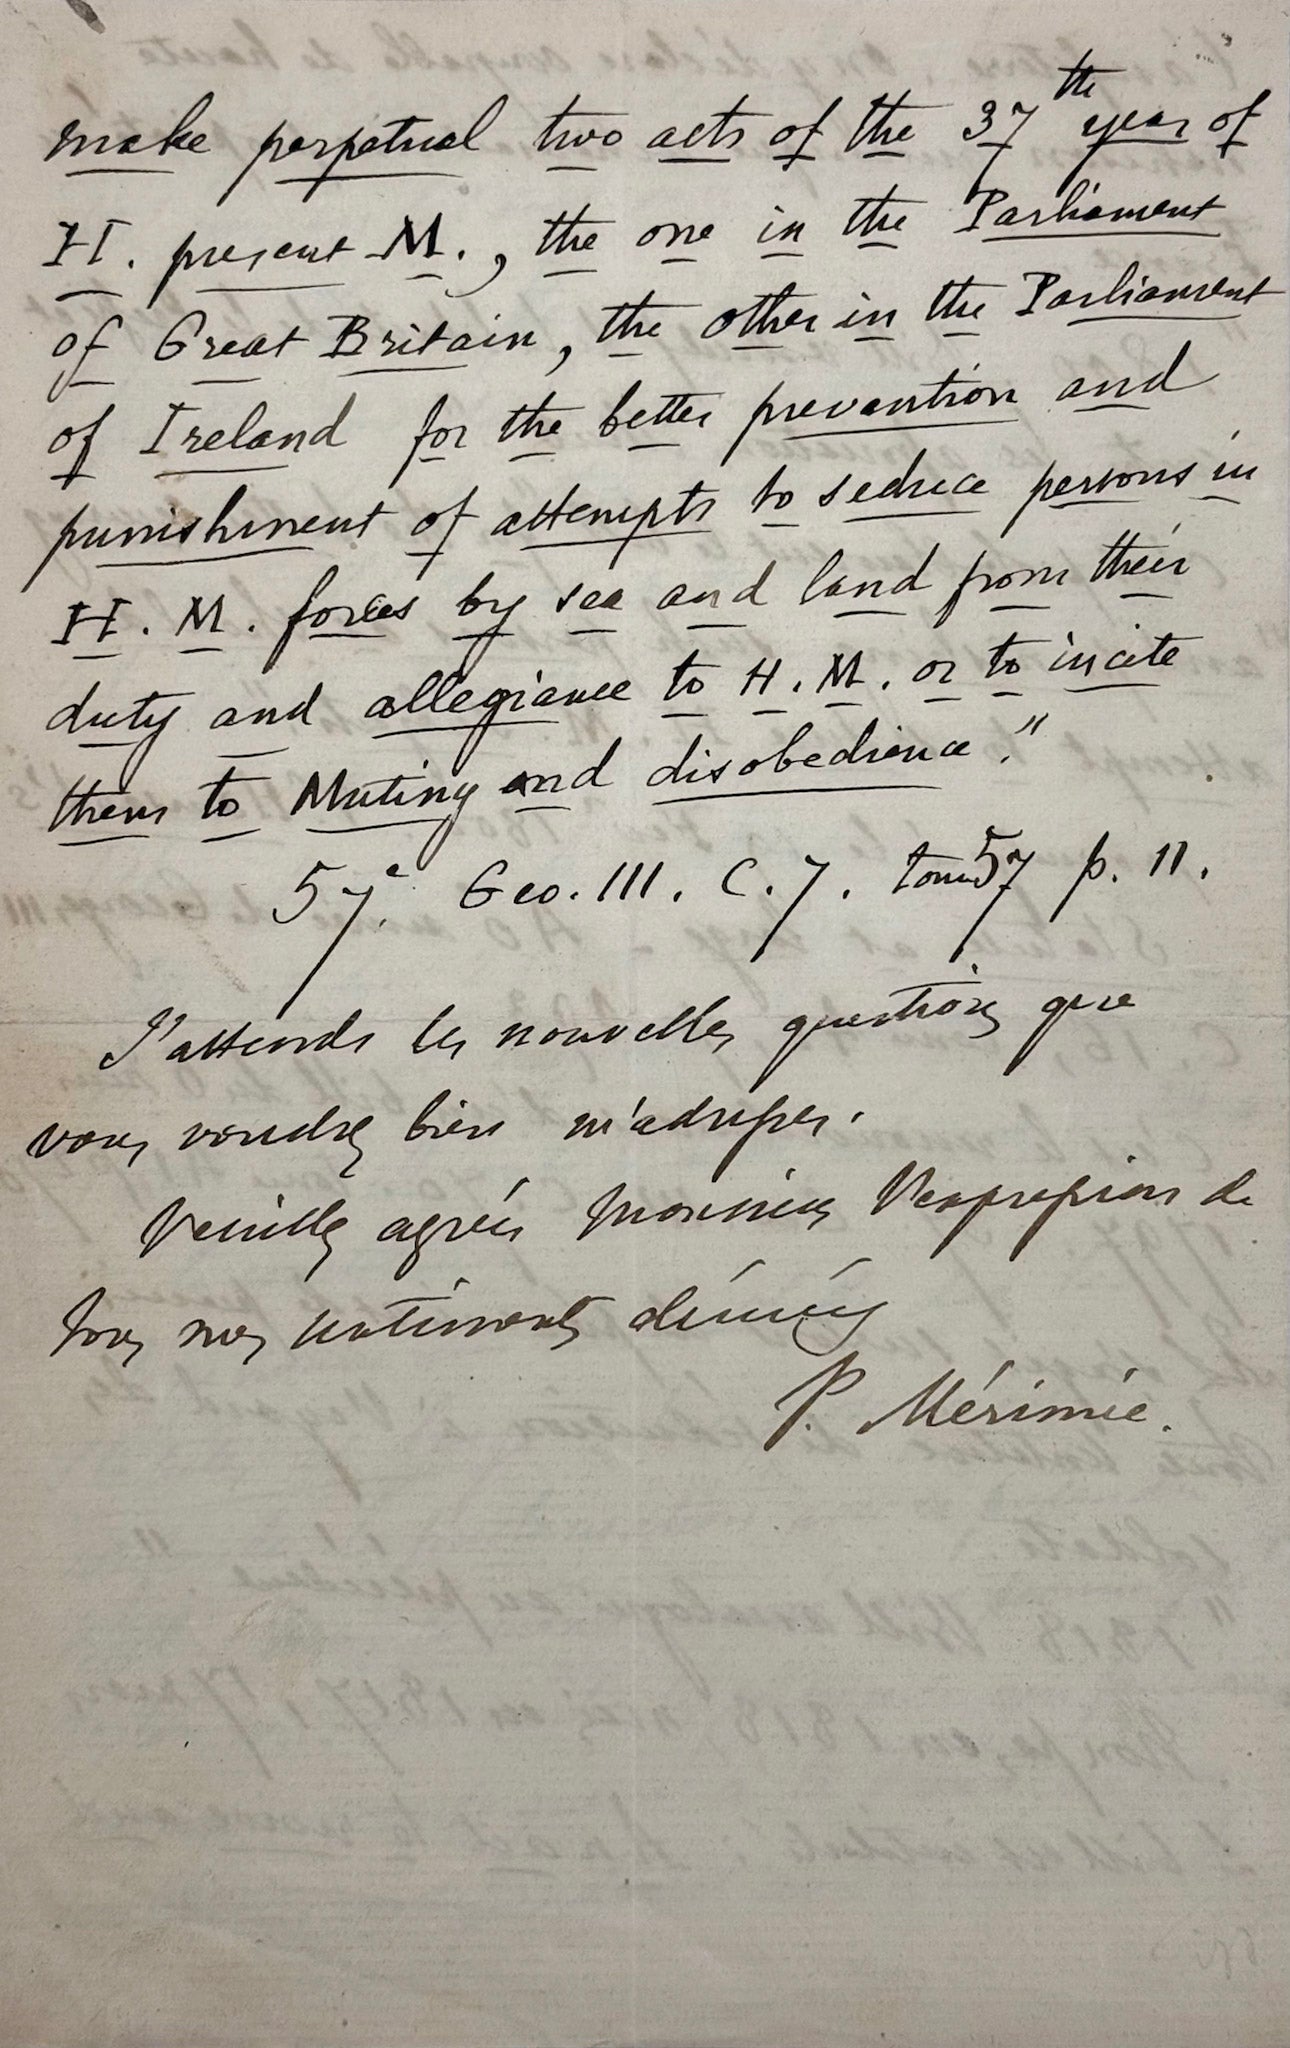 make perpetual two acts of the 37th year of
H. present M., the one in the Parliament
of Great Britain, the other in the Parliament
of Ireland for the better prevention and
punishment of attempts to seduce persons in
H. M. forces by sea and land from their
duty and allegiance to H. M. or to incite
them to Mutiny and disobedience."
57e. Geo. III. C. 7. tom 57 p. 11.
J'attends les nouvelles questions que
vous voudrez bien m'adresser.
Veuillez agréer Monsieur l'expression de
tous mes sentiments dévoués
P. Mérimée.